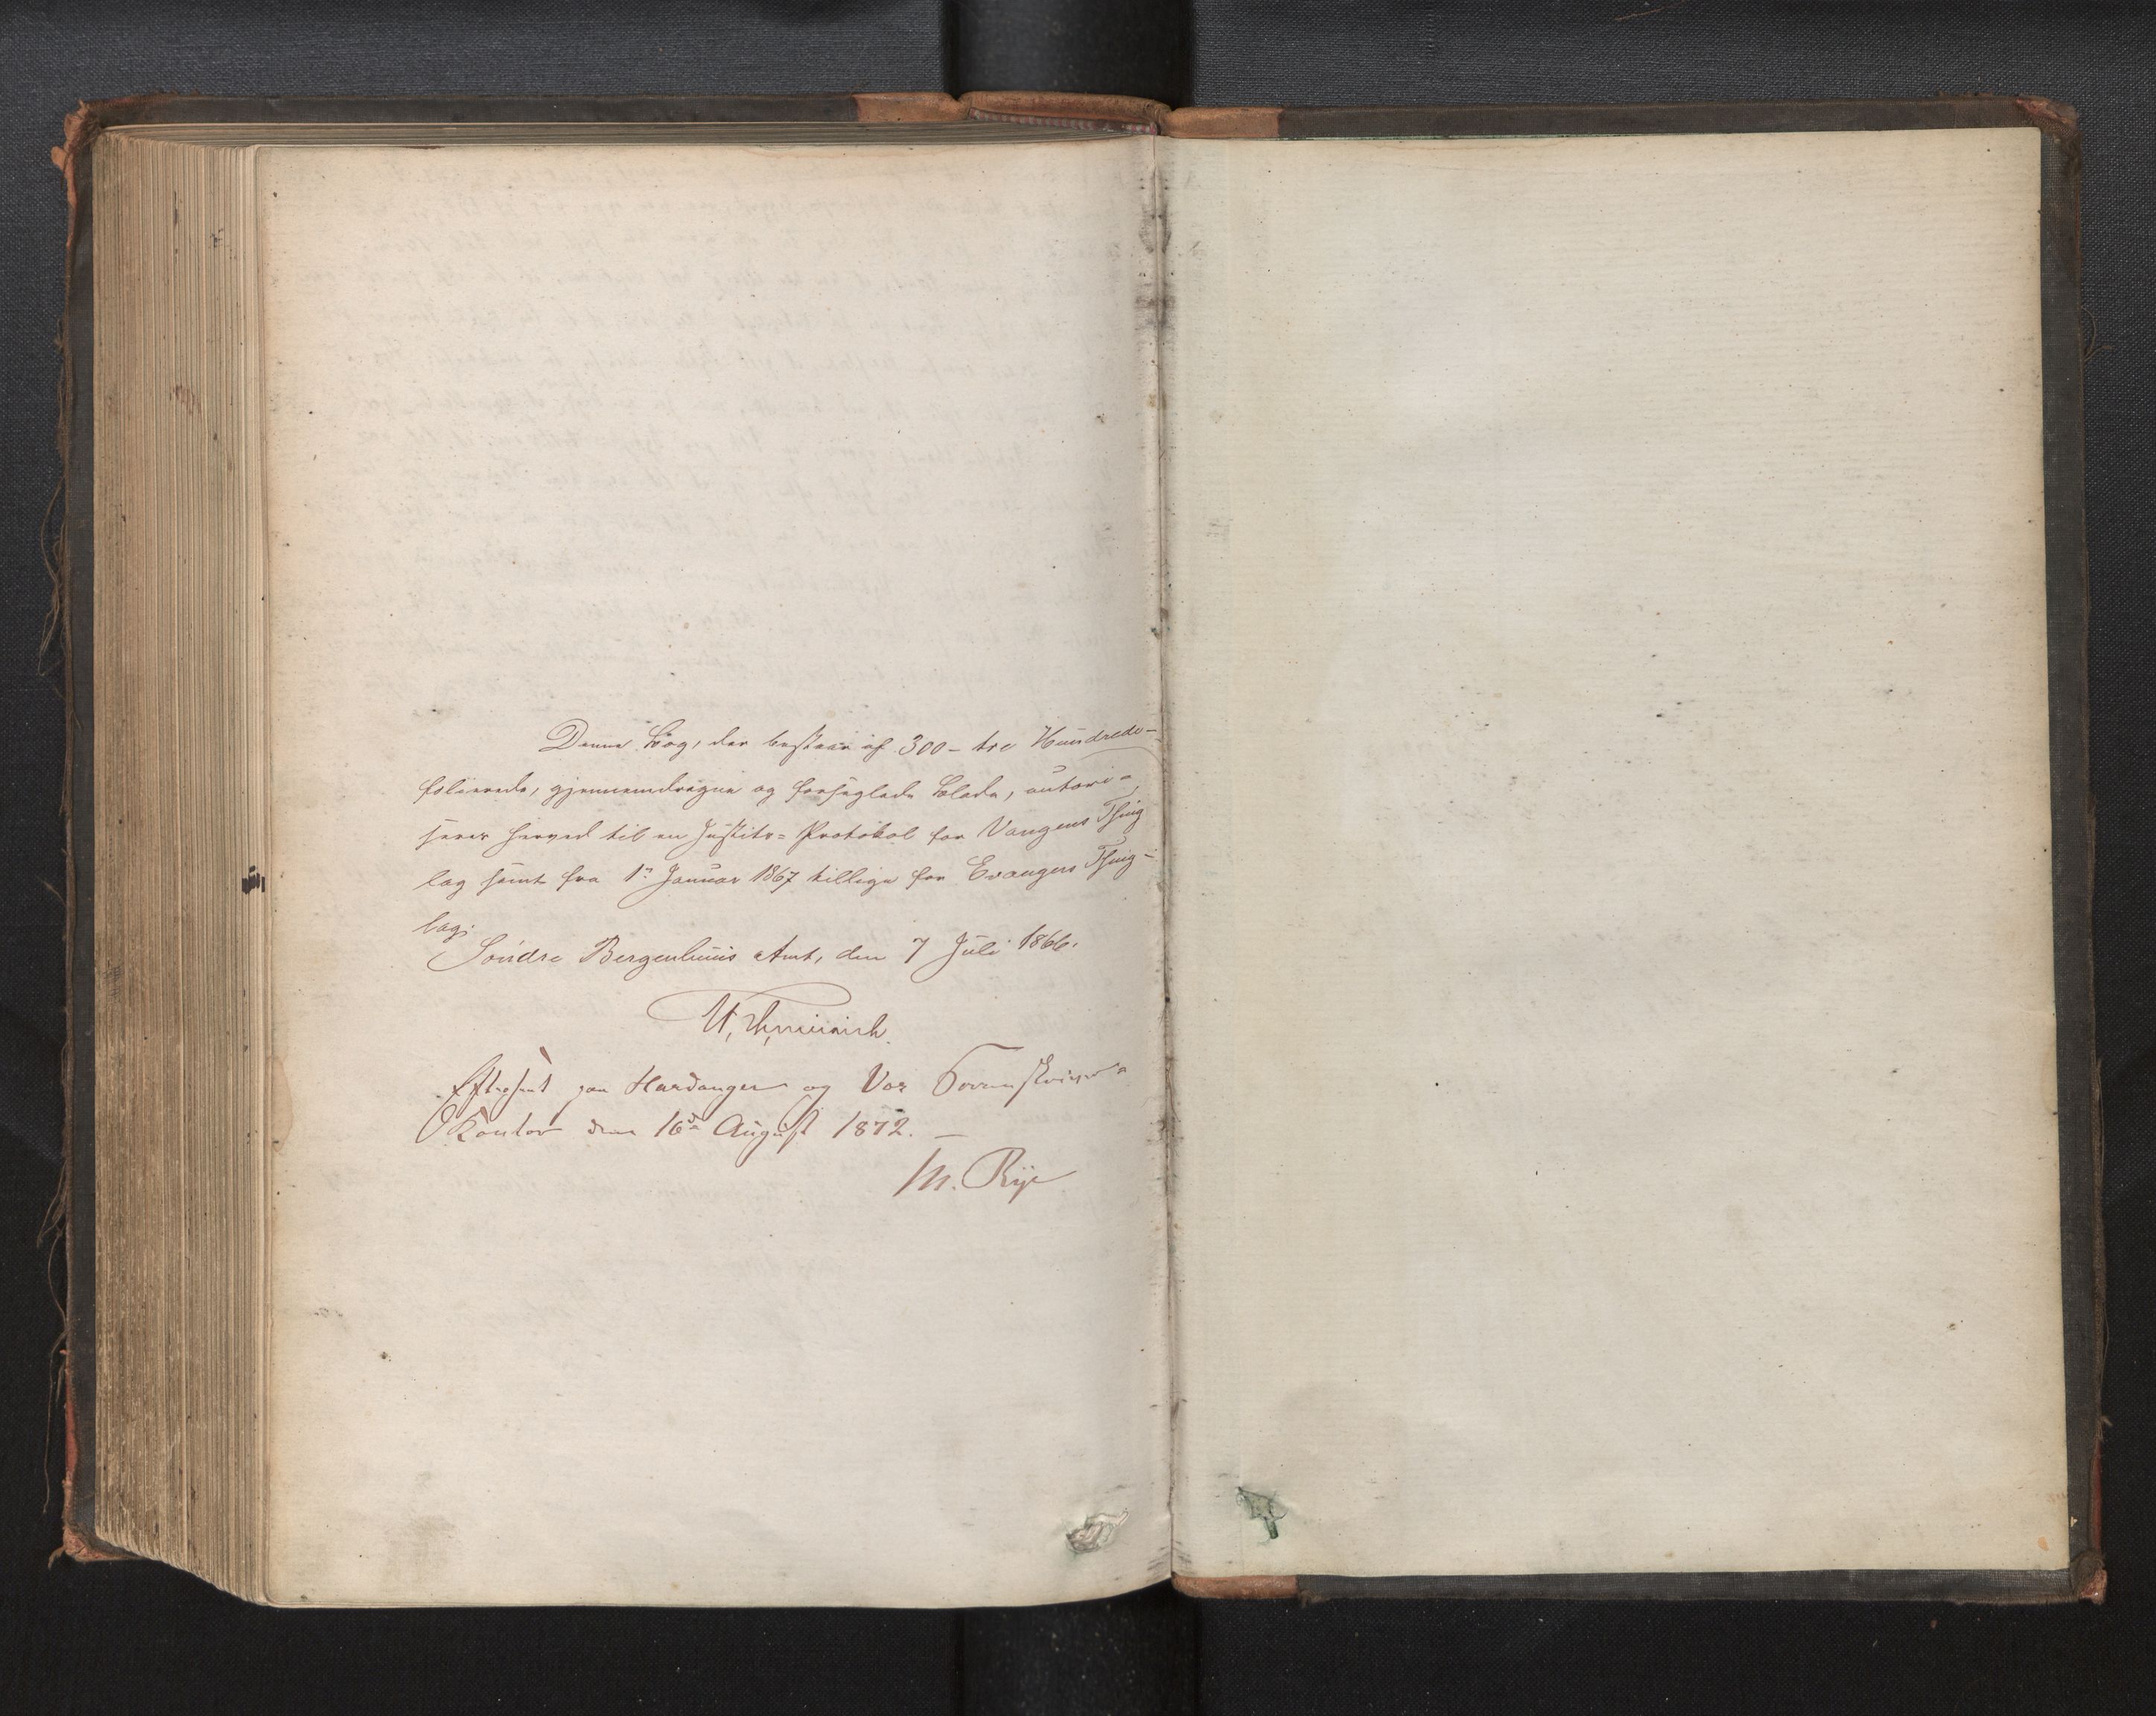 Denne Bog, der bestaar af 300 - tre Hundrede -
folierede, gjennemdragne og forseglede Blade, autori-
seres herved til en Justits- Protokol for Vangens Thing
lag samt fra 1ste Januar 1867 tillige for Evangers Thing-
lag.
Søndre Bergenhuus Amt, den 7 Juli 1866.
Efterseet paa Hardanger og Vos Sorenskriver-
Kontor den 16de August 1872. -
M. Rye